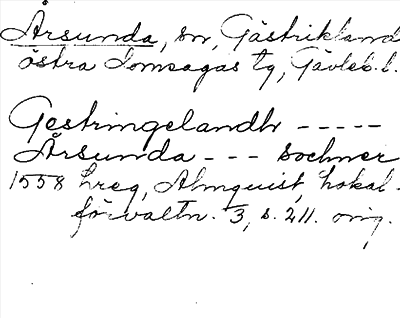 Årsunda, sn, Gästrikland
östra domsagas tg, Gävleb. l.
Gestringelandh -----
Årsunda - - - sochner
1558 hreg, Almquist, Lokal-
förvaltn. 3, s. 211. orig.